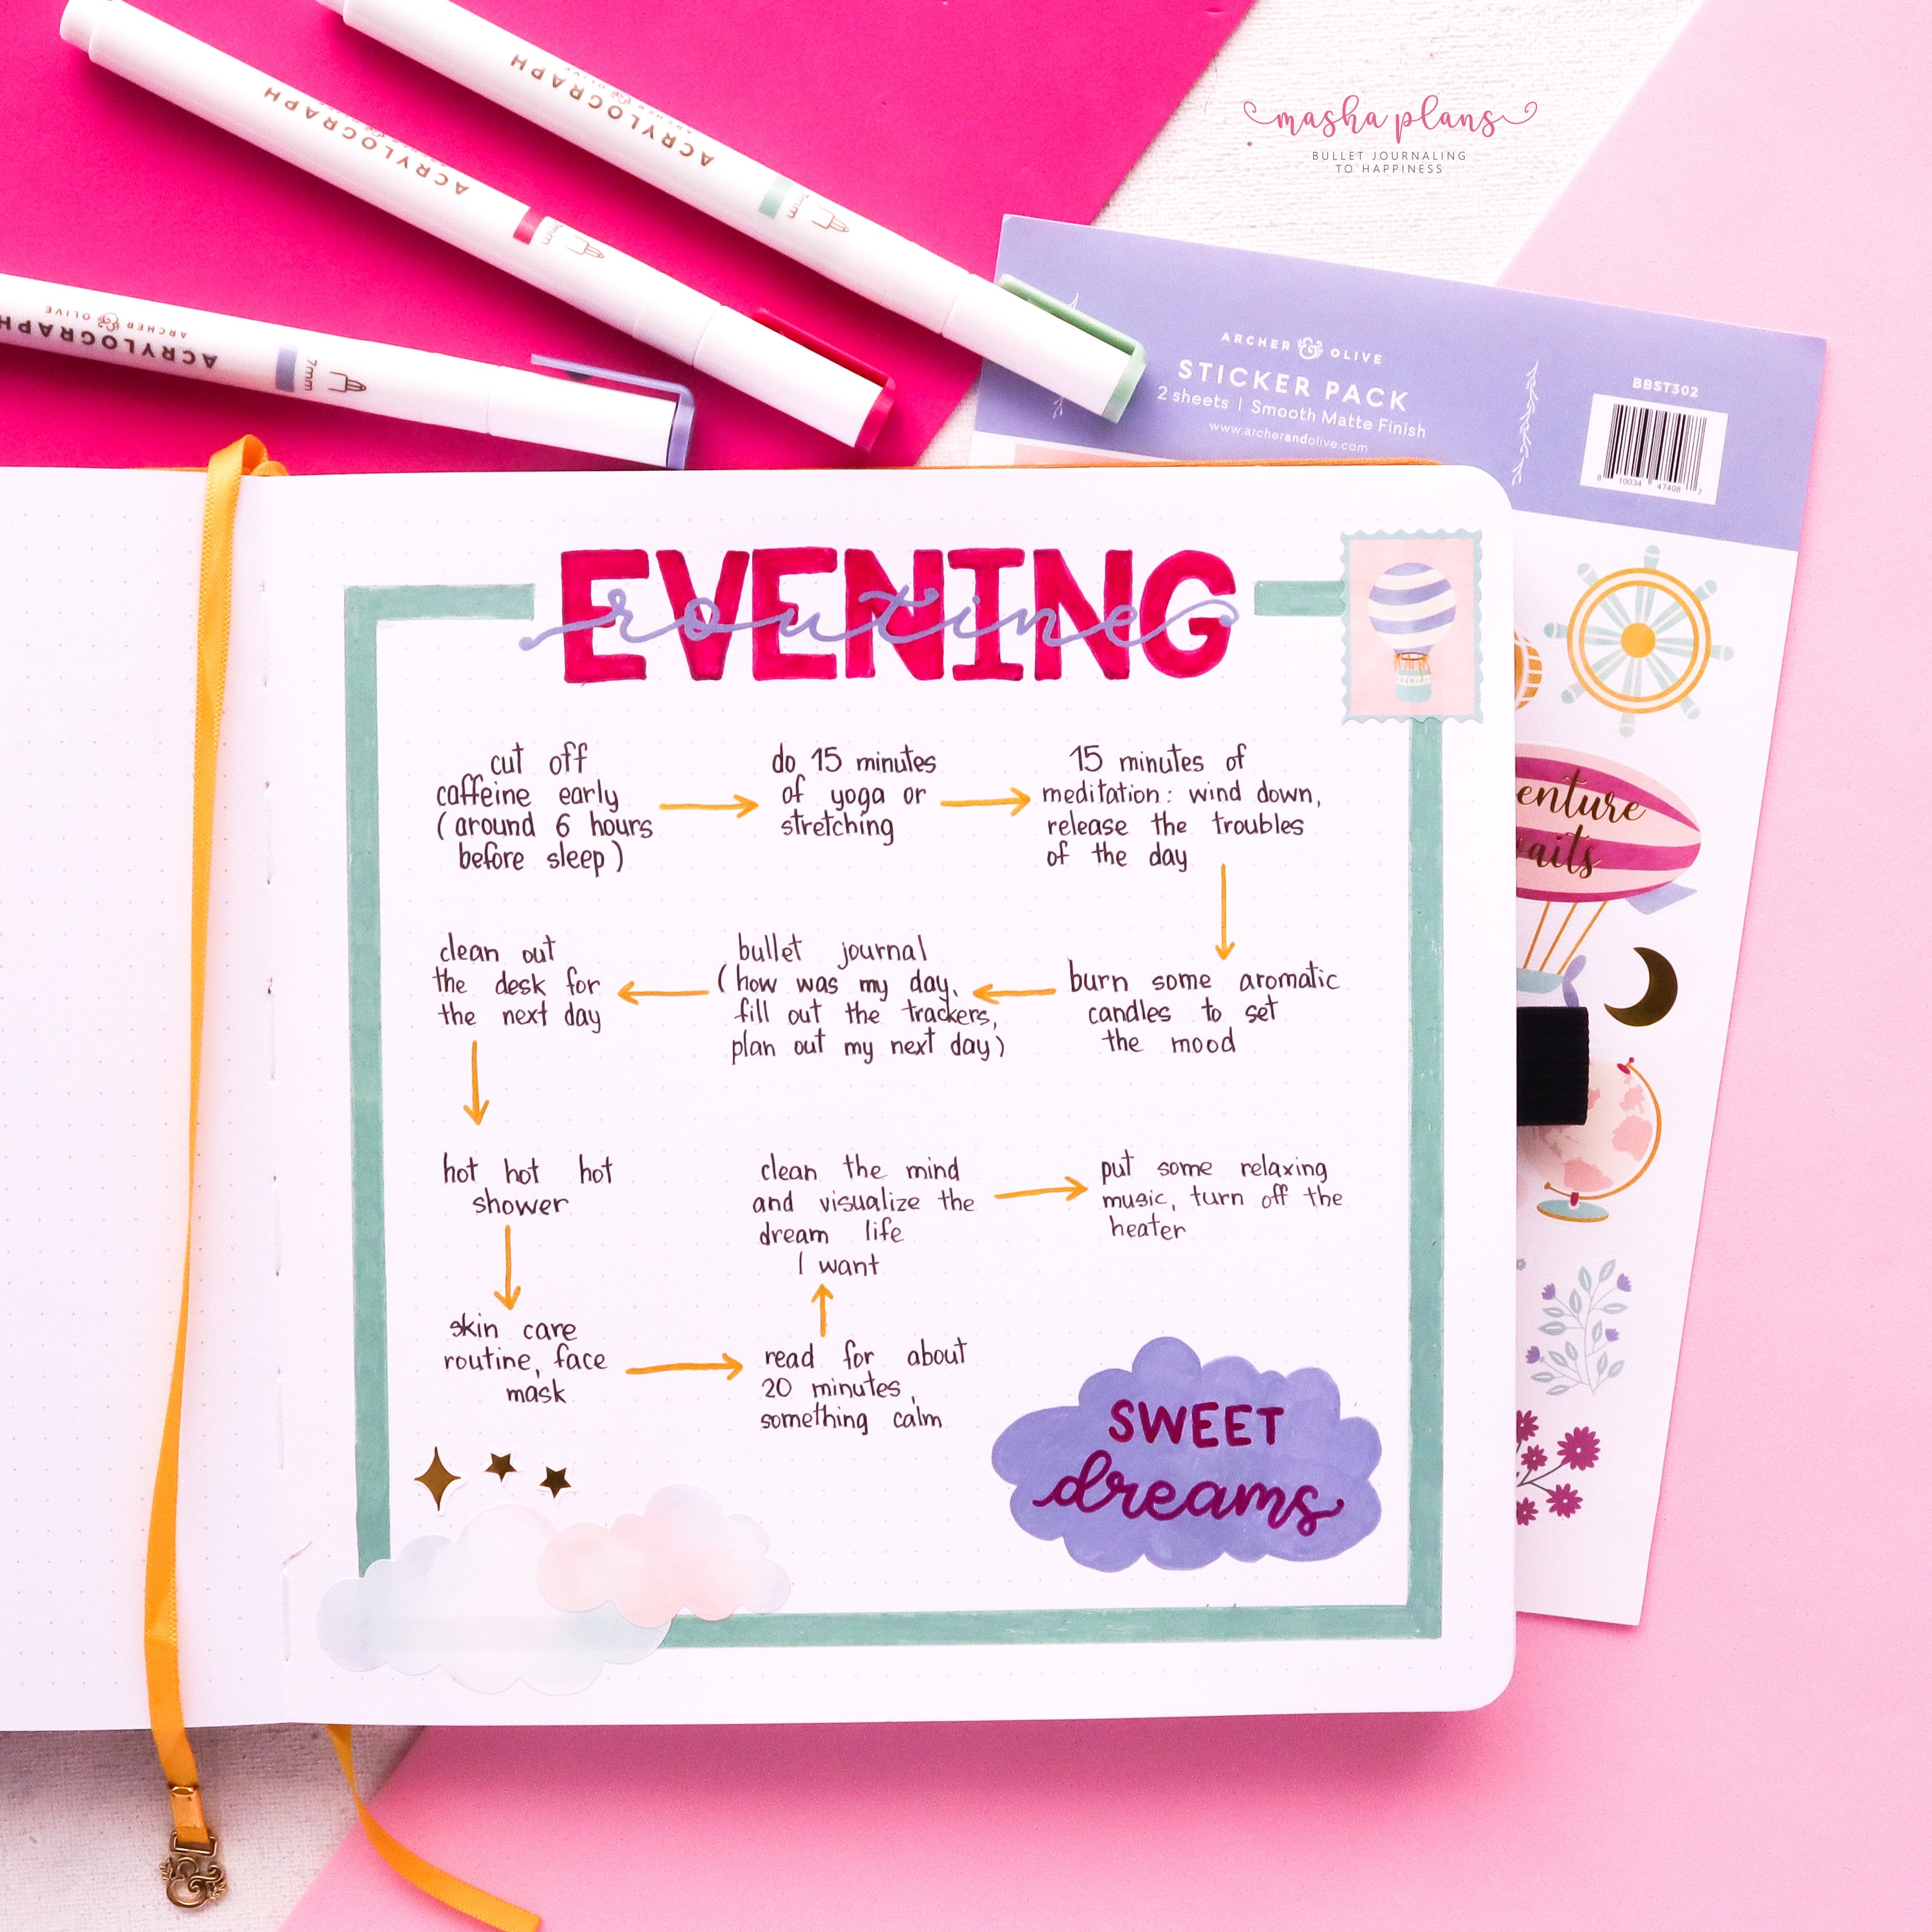 masha plans
BULLET JOURNALING
TO HAPPINESS
ACRYLOGRAPH
ARCHER & OLIVE
ACRYLOGRAPH
ACRYLOGRAPH
ARCHER & OLIVE
.7mm
ARCHER & OLIVE
STICKER PACK
2 sheets | Smooth Matte Finish
www.archerandolive.com
BBST302
8 10034 47408 7
EVENING
routine
cut off
caffeine early
(around 6 hours
before sleep)
do 15 minutes
of yoga or
stretching
15 minutes of
meditation: wind down,
release the troubles
of the day
burn some aromatic
candles to set
the mood
bullet journal
(how was my day,
fill out the trackers,
plan out my next day)
clean out
the desk for
the next day
hot hot hot
shower
skin care
routine, face
mask
read for about
20 minutes,
something calm
clean the mind
and visualize the
dream life
I want
put some relaxing
music, turn off the
heater
SWEET
dreams
enture
aits